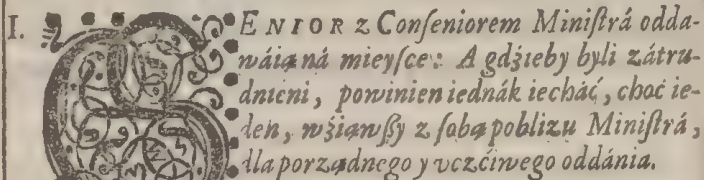 I. SENIOR z Conſeniorem Miniſtrá odda-
wáią ná mieyſce: A gdźieby byli zátru-
dnieni, powinien iednák iecháć, choć ie-
den, wźiąwſſy z ſobą poblizu Miniſtrá,
dla porządnego y vczćiwego oddánia.